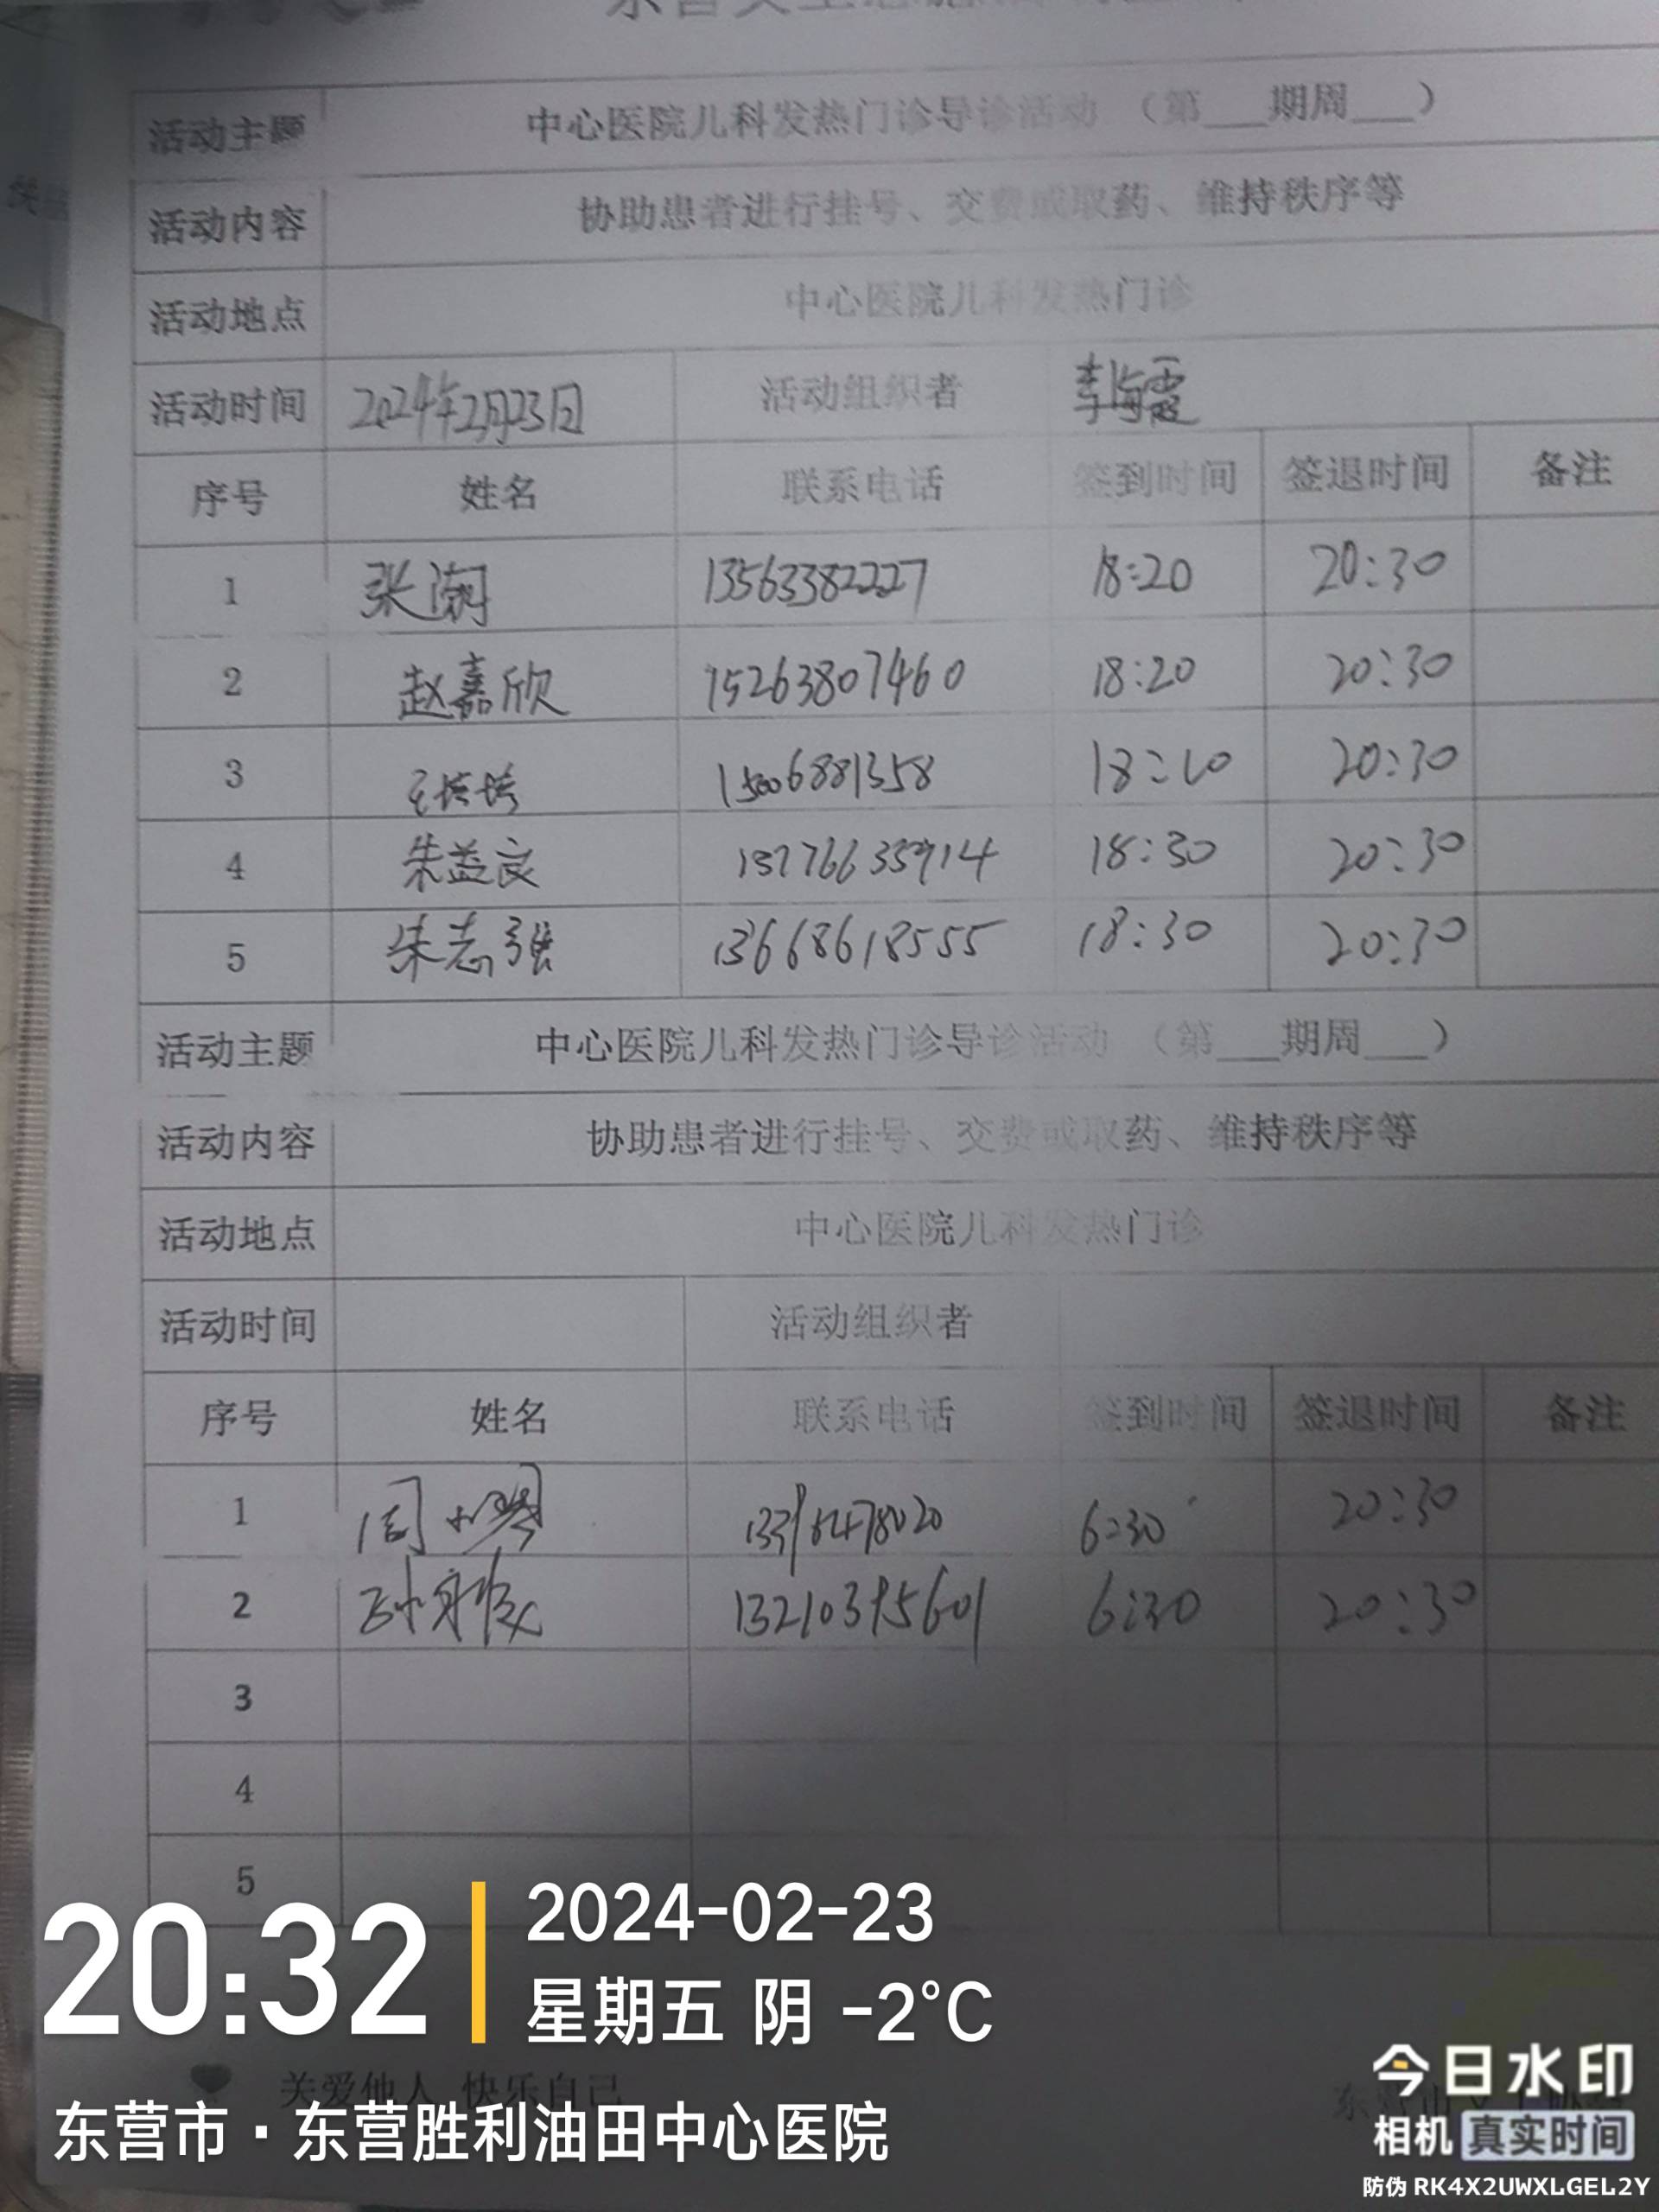 活动主题 中心医院儿科发热门诊导诊活动 （第___期周___）
活动内容 协助患者进行挂号、交费或取药、维持秩序等
活动地点 中心医院儿科发热门诊
活动时间 2024年2月23日 活动组织者 李海霞
序号 姓名 联系电话 签到时间 签退时间 备注
1 张 13563382227 18:20 20:30
2 赵嘉欣 15263807460 18:20 20:30
3 15006881358 20:30
4 朱益良 18:30 20:30
5 朱志强 13668618555 18:30 20:30
活动主题 中心医院儿科发热门诊导诊活动 （第___期周___）
活动内容 协助患者进行挂号、交费或取药、维持秩序等
活动地点 中心医院儿科发热门诊
活动时间 活动组织者
序号 姓名 联系电话 签到时间 签退时间 备注
1 周 6:30 20:30
2 6:30 20:30
3
4
5
20:32
2024-02-23
星期五 阴 -2°C
关爱他人 快乐自己
东营市·东营胜利油田中心医院
今日水印
相机 真实时间
防伪 RK4X2UWXLGEL2Y